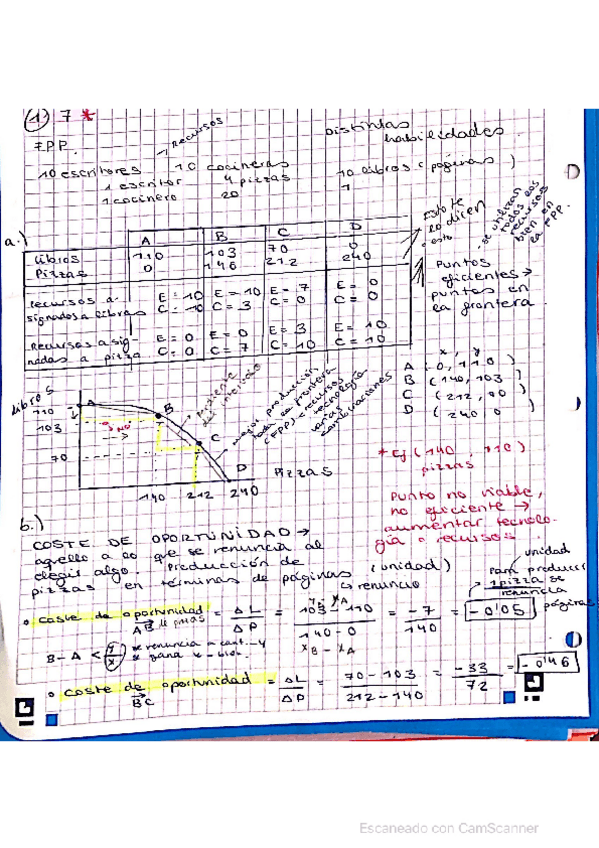 1) 7 *
FPP.
→ recursos
Distintas habilidades.
10 escritores 10 cocineros 10 libros (páginas)
1 escritor 4 pizzas 1
1 cocinero 20
a.)
A B C D
Libros 110 103 70 0
Pizzas 0 146 212 240
recursos asignados a libros E=10 E=10 E=7 E=0
C=10 C=3 C=0 C=0
Recursos asignados a pizza E=0 E=0 E=3 E=10
C=0 C=7 C=10 C=10
Esto te lo dicen
se utilizan todos los recursos bien en la FPP.
Puntos eficientes →
puntos en la frontera.
x, y
A (0, 110)
B (140, 103)
C (212, 00)
D (240 0)
Libros
110 A
103 B
NO
70 C
D Pizzas
140 212 240
mayor producción, toda la frontera
(FPP) = recursos tecnología
varias combinaciones
* Ej (140, 110)
pizzas
Punto no viable,
no eficiente →
aumentar tecnolo-
gía o recursos.
b.)
COSTE DE OPORTUNIDAD →
aquello a lo que se renuncia al
elegir algo. Producción de
pizzas en términos de páginas (unidad)
↳ renuncio
unidad
Para producir
1 pizza se
renuncia
páginas
• coste de oportunidad = ΔL/ΔP = 103 - 110 / 140 - 0 = -7/140 = -0'05
AB de pizzas
yB yA
xB - xA
B - A < y/x se renuncia = cant - y
se gana x = bien
• coste de oportunidad = ΔL/ΔP = 70 - 103 / 212 - 140 = -33/72 = -0'46
BC
Escaneado con CamScanner